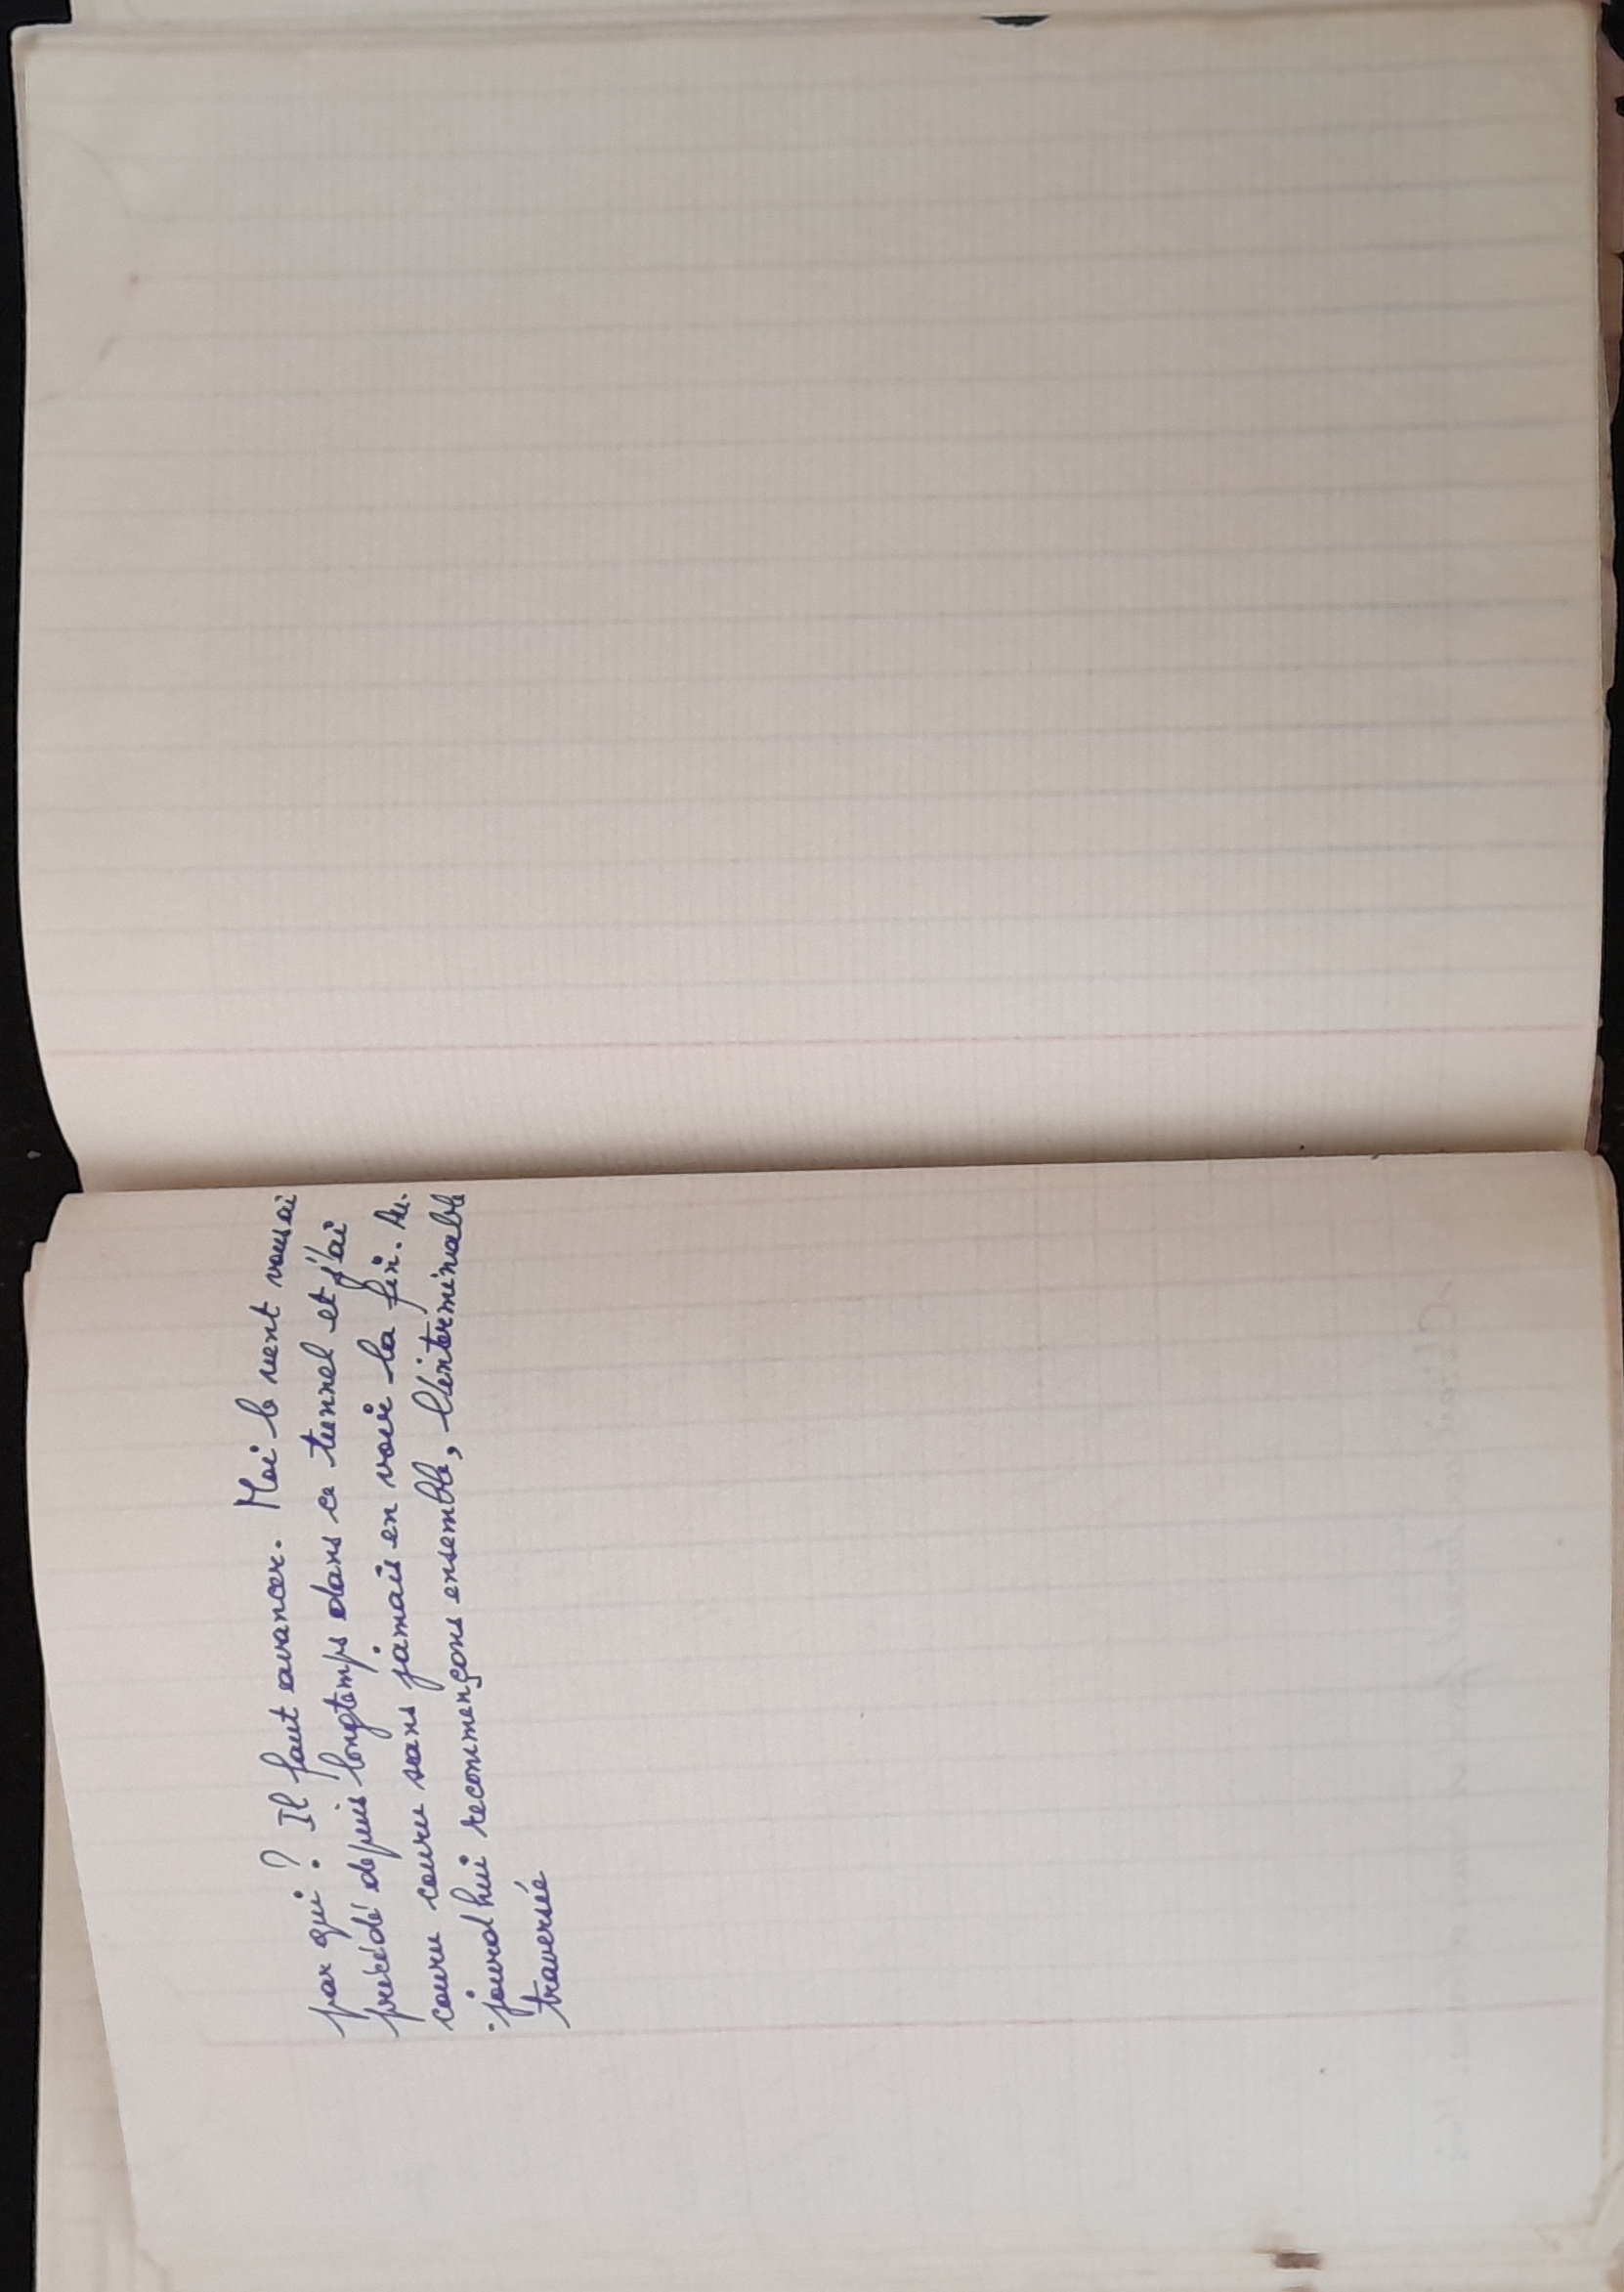 par qui ? Il faut avancer. Moi le vent vous ai
précédé depuis longtemps dans ce tunnel et j'ai
couru couru couru sans jamais en voir la fin. Au-
-jourd'hui recommençons ensemble, l'interminable
traversée